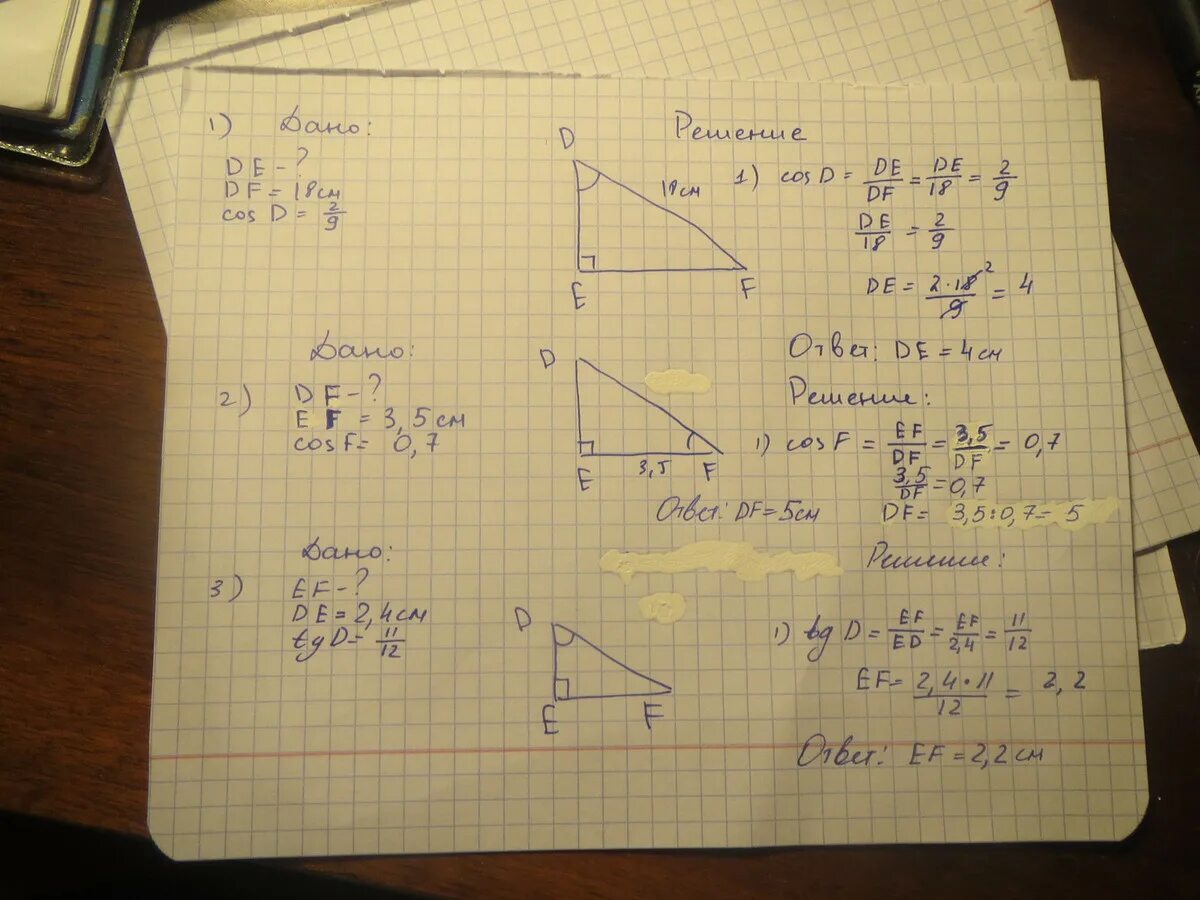 1) Дано:
DE - ?
DF = 18см
cos D = 2/9
D
18см
E
F
Решение
1) cos D = DE/DF = DE/18 = 2/9
DE/18 = 2/9
DE = 2·18/9 2 = 4
Ответ: DE = 4см
2) Дано:
DF - ?
EF = 3,5см
cos F = 0,7
D
E
3,5
F
Решение:
1) cos F = EF/DF = 3,5/DF = 0,7
3,5/DF = 0,7
DF = 3,5:0,7 = 5
Ответ: DF = 5см
3) Дано:
EF - ?
DE = 2,4см
tg D = 11/12
D
E
F
Решение:
1) tg D = EF/ED = EF/2,4 = 11/12
EF = 2,4·11/12 = 2,2
Ответ: EF = 2,2см